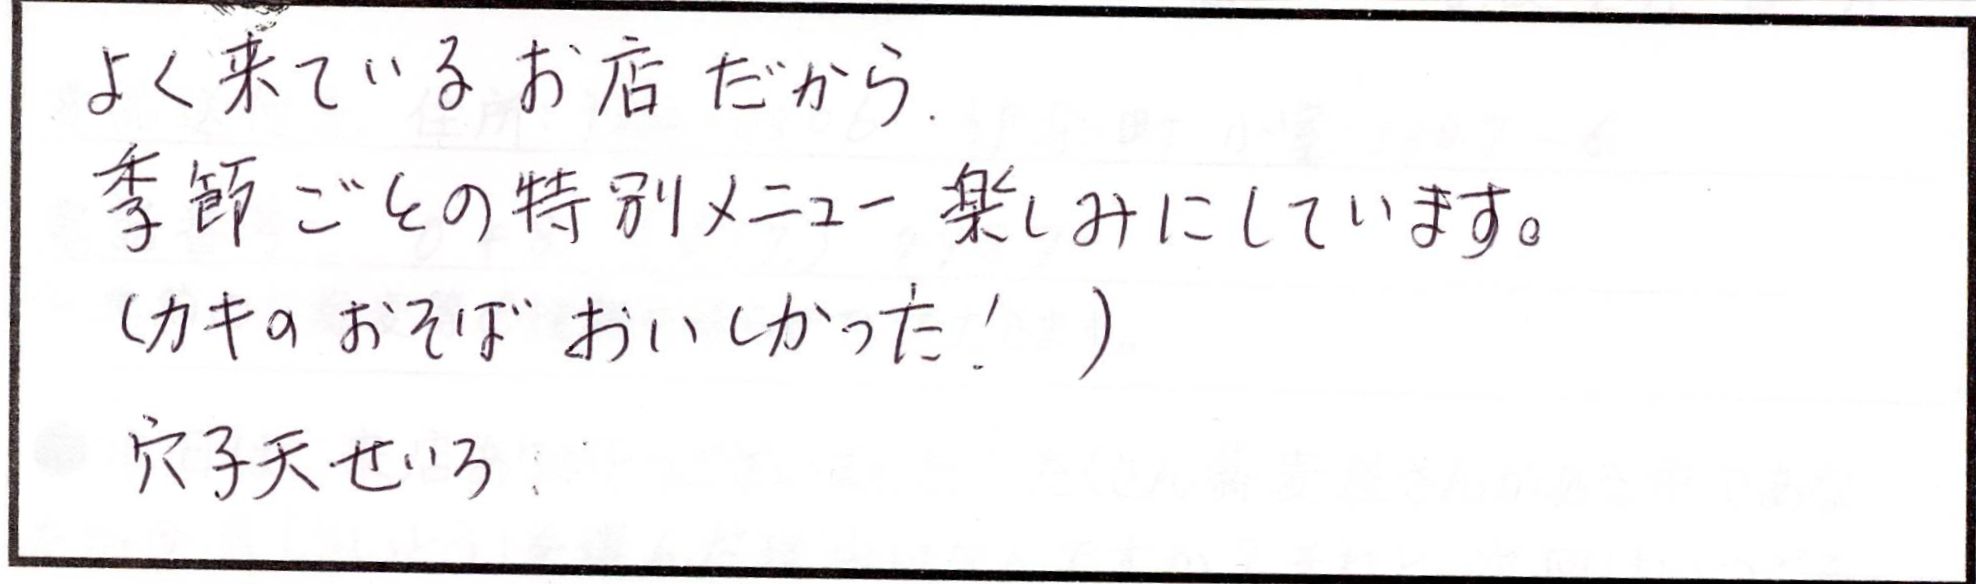 よく来ているお店だから.
季節ごとの特別メニュー楽しみにしています。
(カキのおそばおいしかった! )
穴子天せいろ